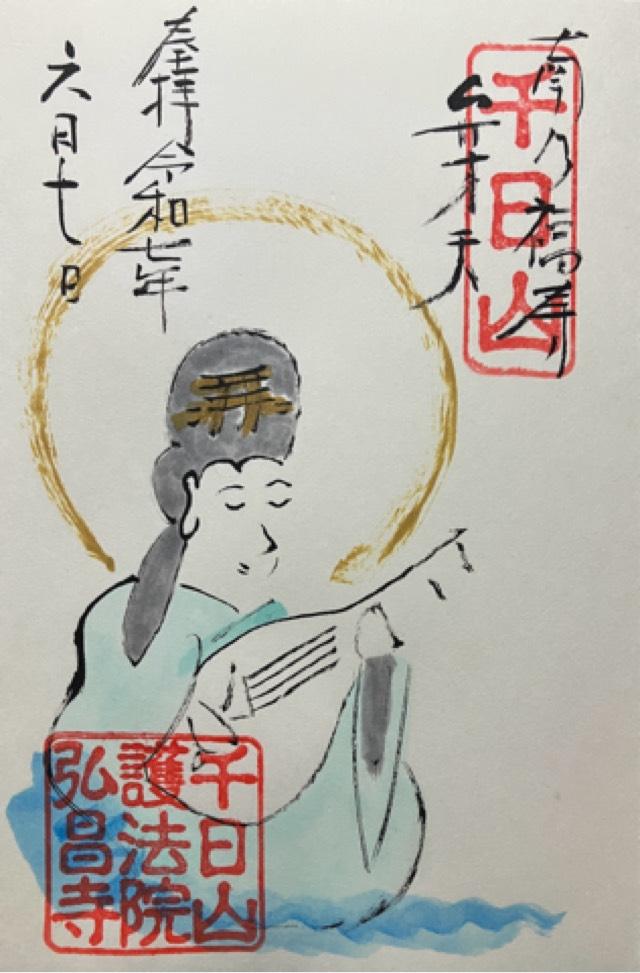 千日山
福寿
弁才天
奉拝 令和七年
六月十日
千日山
護法院
弘昌寺